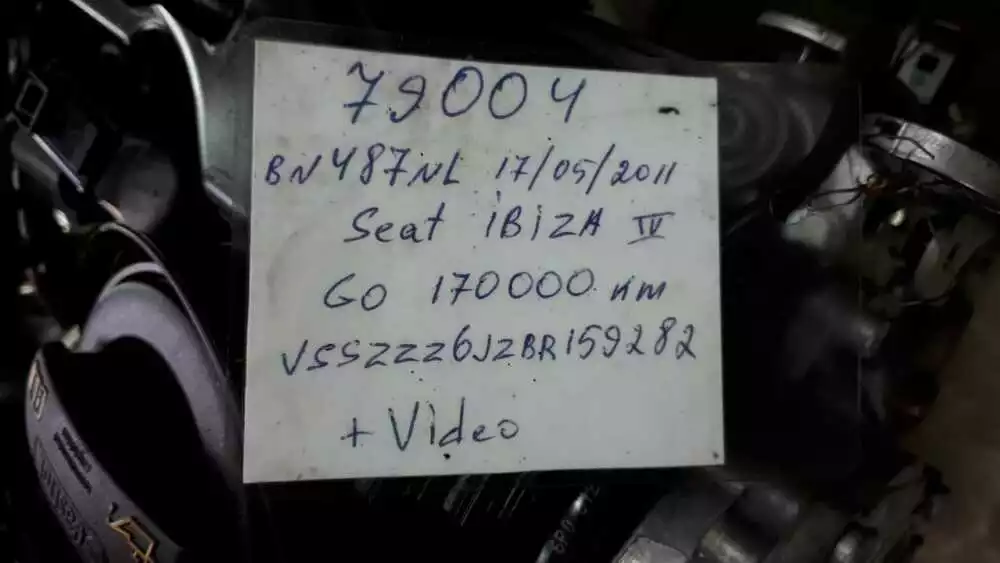 79004
BN487NL 17/05/2011
Seat iBiZA IV
GO 170000 km
VSSZZZ6JZBR159282
+ Video